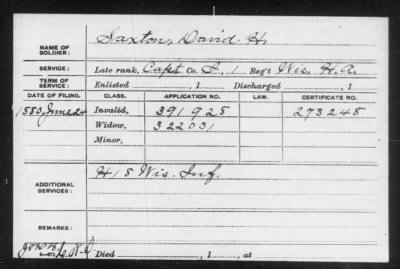 NAME OF SOLDIER: Saxton, David H.
SERVICE: Late rank, Capt Co. I, 1 Reg't Wis. H.A.
TERM OF SERVICE: Enlisted , 1 Discharged , 1
DATE OF FILING. CLASS. APPLICATION NO. LAW. CERTIFICATE NO.
1880 June 24 Invalid, 391 928 273248
Widow, 322031
Minor,
ADDITIONAL SERVICES: H 18 Wis. Inf.
REMARKS:
Died , 1 , at